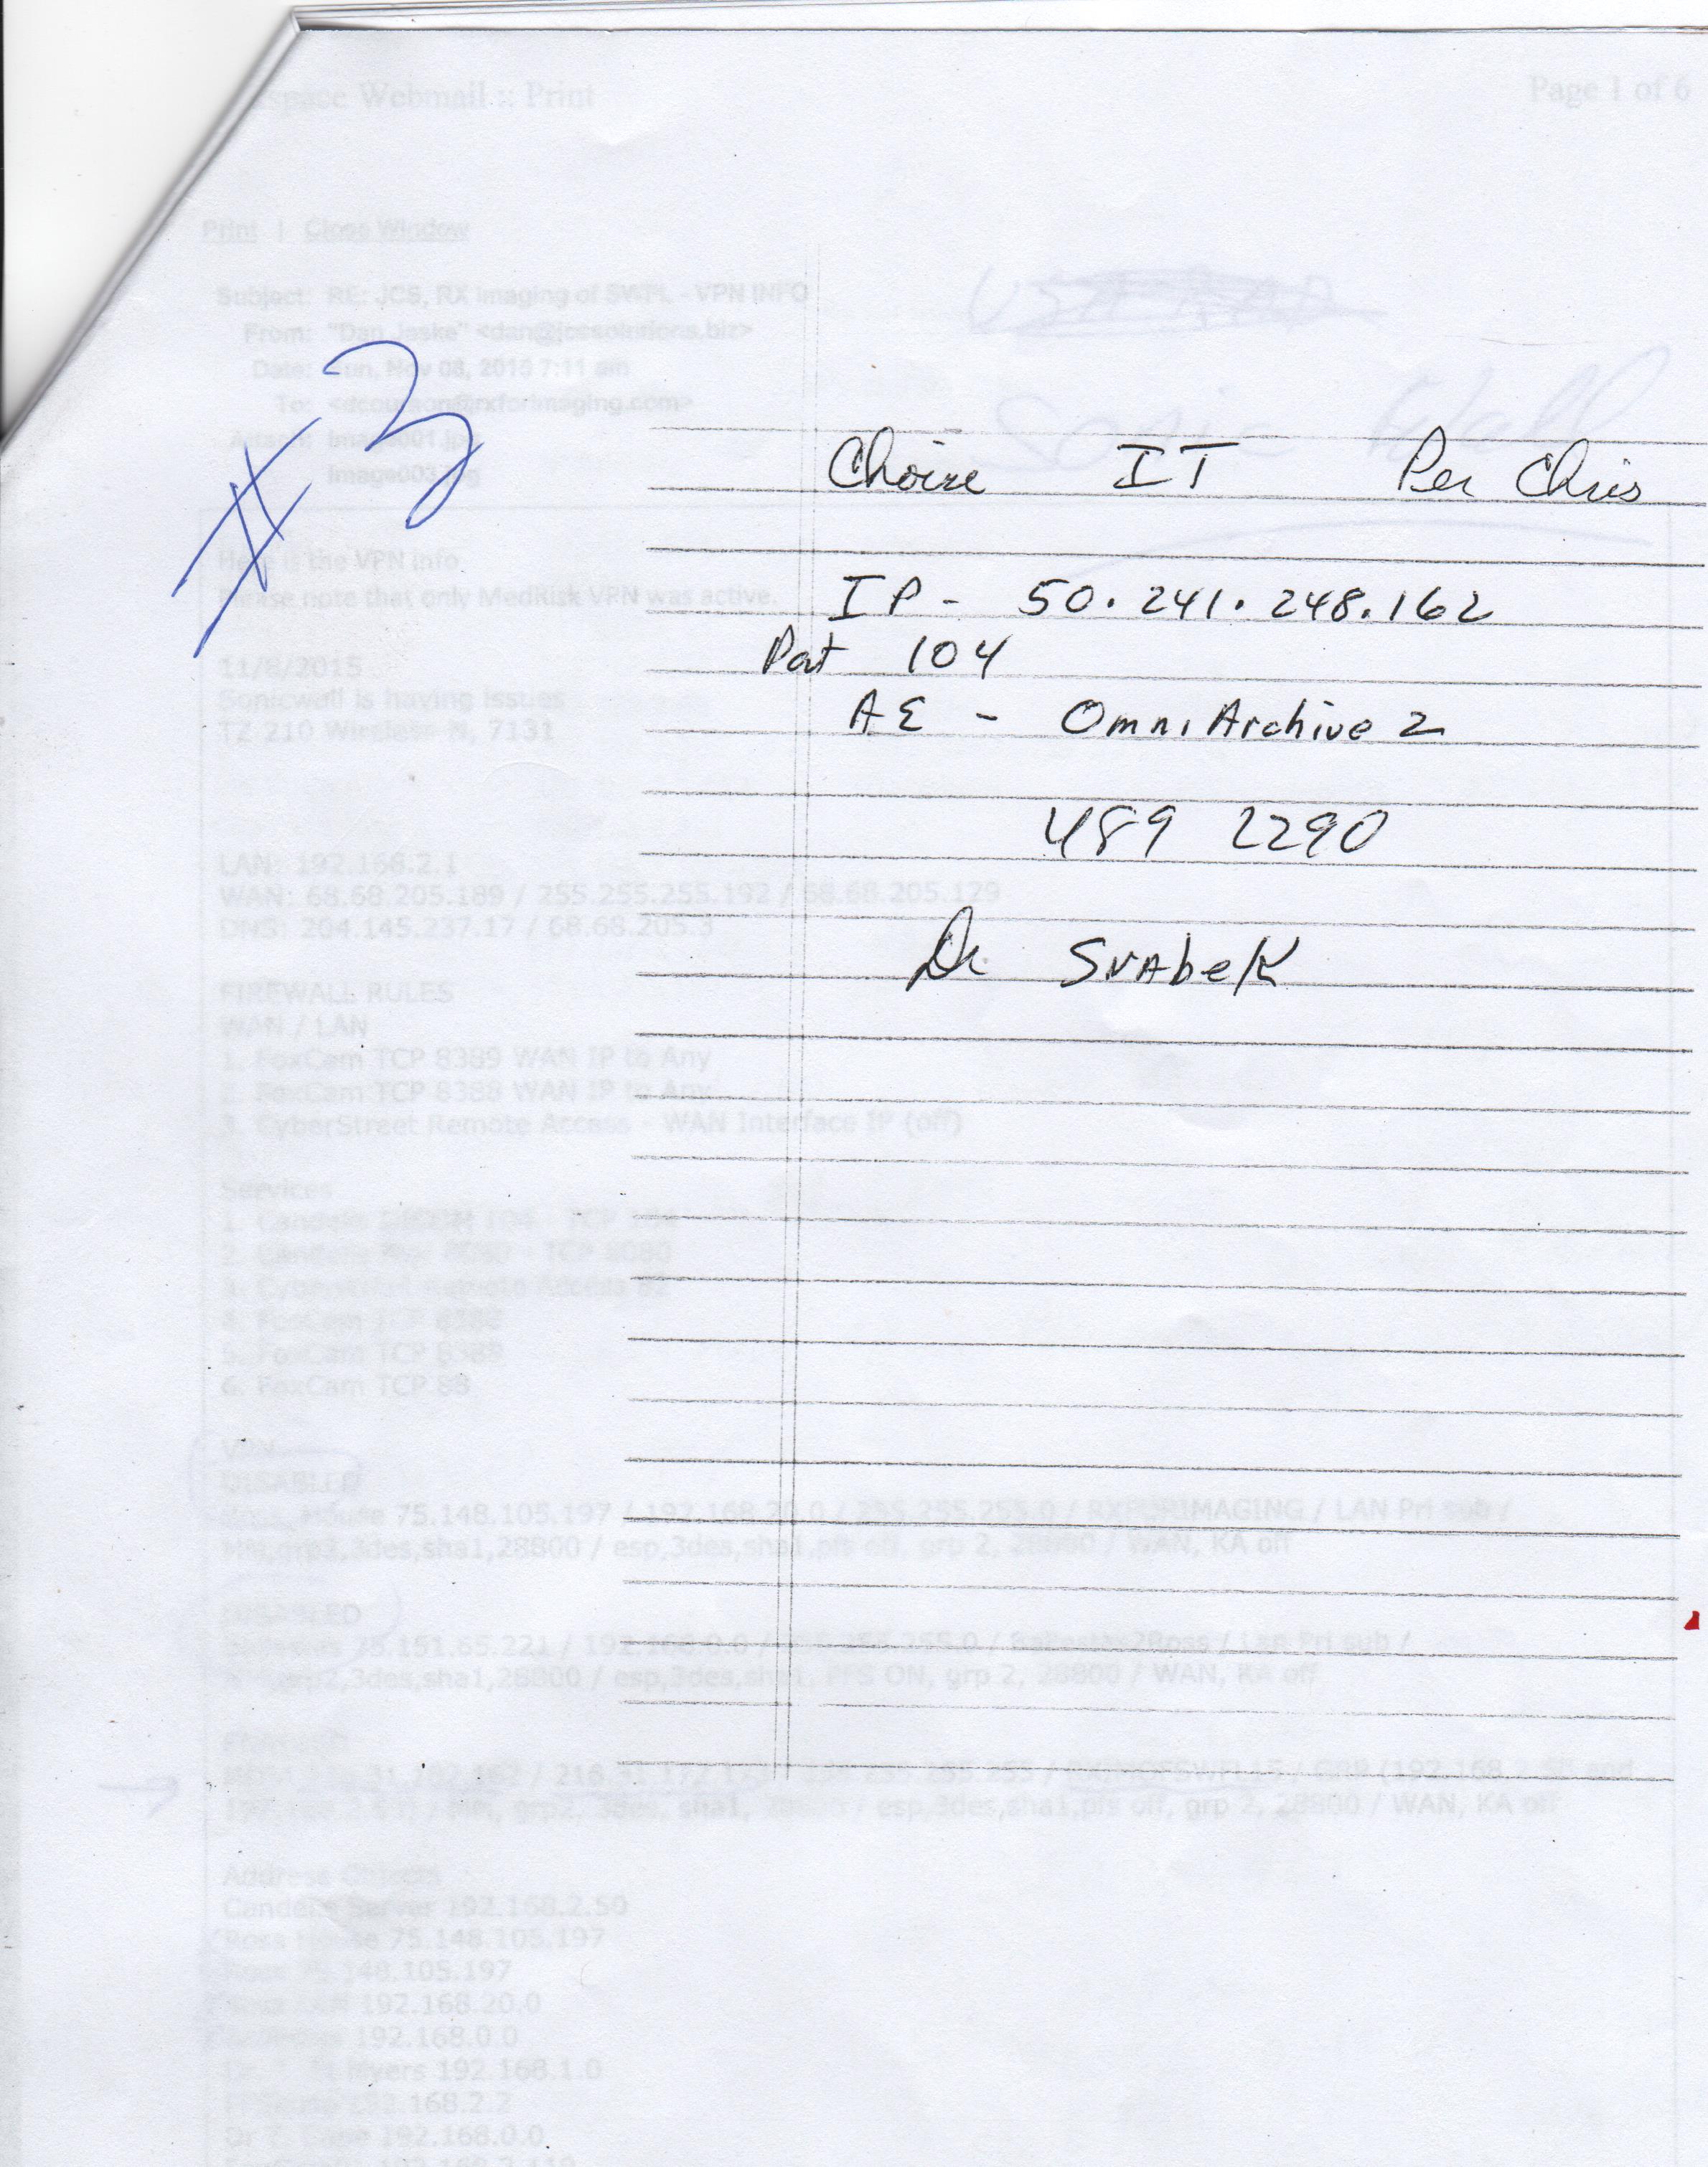 Page 1 of 6
space Webmail :: Print
Print | Close Window
Subject: RE: JCS, RX Imaging of SWFL - VPN INFO
From: "Dan Jaske" <dan@jcssolutions.biz>
Date: Sun, Nov 08, 2015 7:11 am
To: <dcourson@rxforimaging.com>
Attach: image001.jpg
image003.jpg
Sonic Wall
#2
Choice IT Per Chris
Here is the VPN info
Please note that only MedRisk VPN was active.
IP - 50.241.248.162
Port 104
AE - OmniArchive 2
11/8/2015
Sonicwall is having issues
TZ 210 Wireless N, 7131
489 2290
LAN: 192.168.2.1
WAN: 68.68.205.189 / 255.255.255.192 / 68.68.205.129
DNS: 204.145.237.17 / 68.68.205.3
Dr SvAbeK
FIREWALL RULES
WAN / LAN
1. FoxCam TCP 8389 WAN IP to Any
2. FoxCam TCP 8388 WAN IP to Any
3. CyberStreet Remote Access - WAN Interface IP (off)
Services
3. CyberStreet Remote Access
4. FoxCam TCP 8388
5. FoxCam TCP 8389
6. FoxCam TCP 88
VPN
DISABLED
House 75.148.105.197 / 192.168.20.0 / 255.255.255.0 / RXFORIMAGING / LAN Pri sub /
grp2,3des,sha1,28800 / esp,3des,sha1,pfs off, grp 2, 28800 / WAN, KA off
DISABLED
/ Lan Pri sub /
grp2,3des,sha1,28800 / esp,3des,sha1, PFS ON, grp 2, 28800 / WAN, KA off
grp2, 3des, sha1, 28800 / esp,3des,sha1,pfs off, grp 2, 28800 / WAN, KA off
Address Objects
Candelis Server 192.168.2.50
Ross House 75.148.105.197
148.105.197
192.168.20.0
192.168.0.0
Myers 192.168.1.0
168.2.2
192.168.0.0